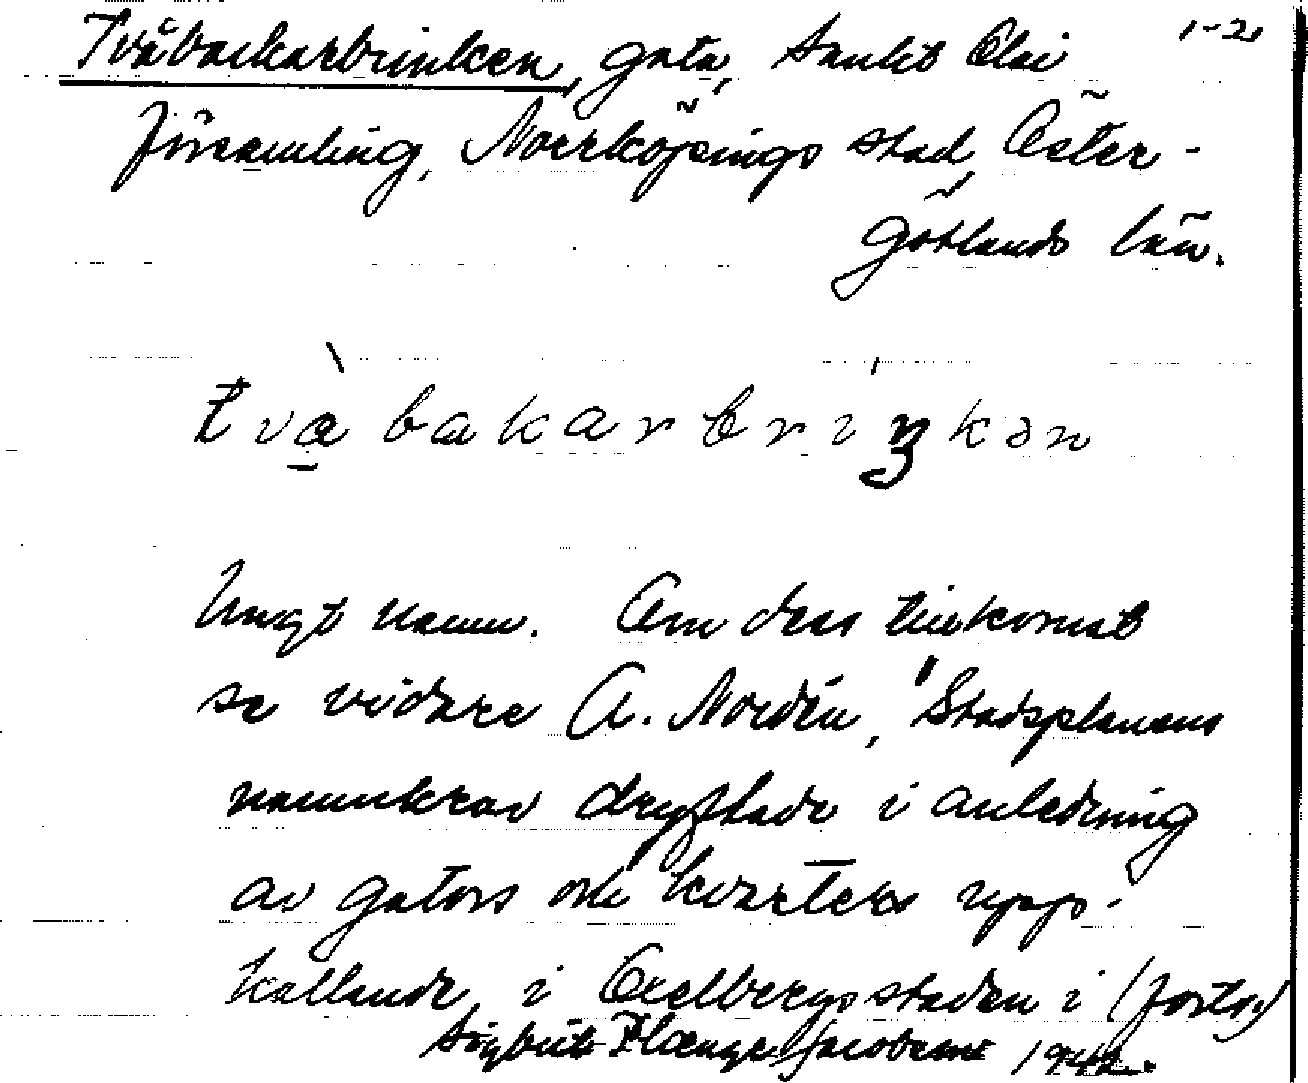 Tvåbackarbrinken, gata, Sankt Olai 1-2
församling, Norrköpings stad, Öster-
götlands län.
tvåbakarbriŋkən
Ungt namn. Om dess tillkomst
se vidare A. Nordén, "Stadsplanens
namnkrav dryftade i anledning
av gators och kvarters upp-
kallande, i Oxelbergsstaden i (forts.)
Sigbrit Plænge Jacobson 1942.